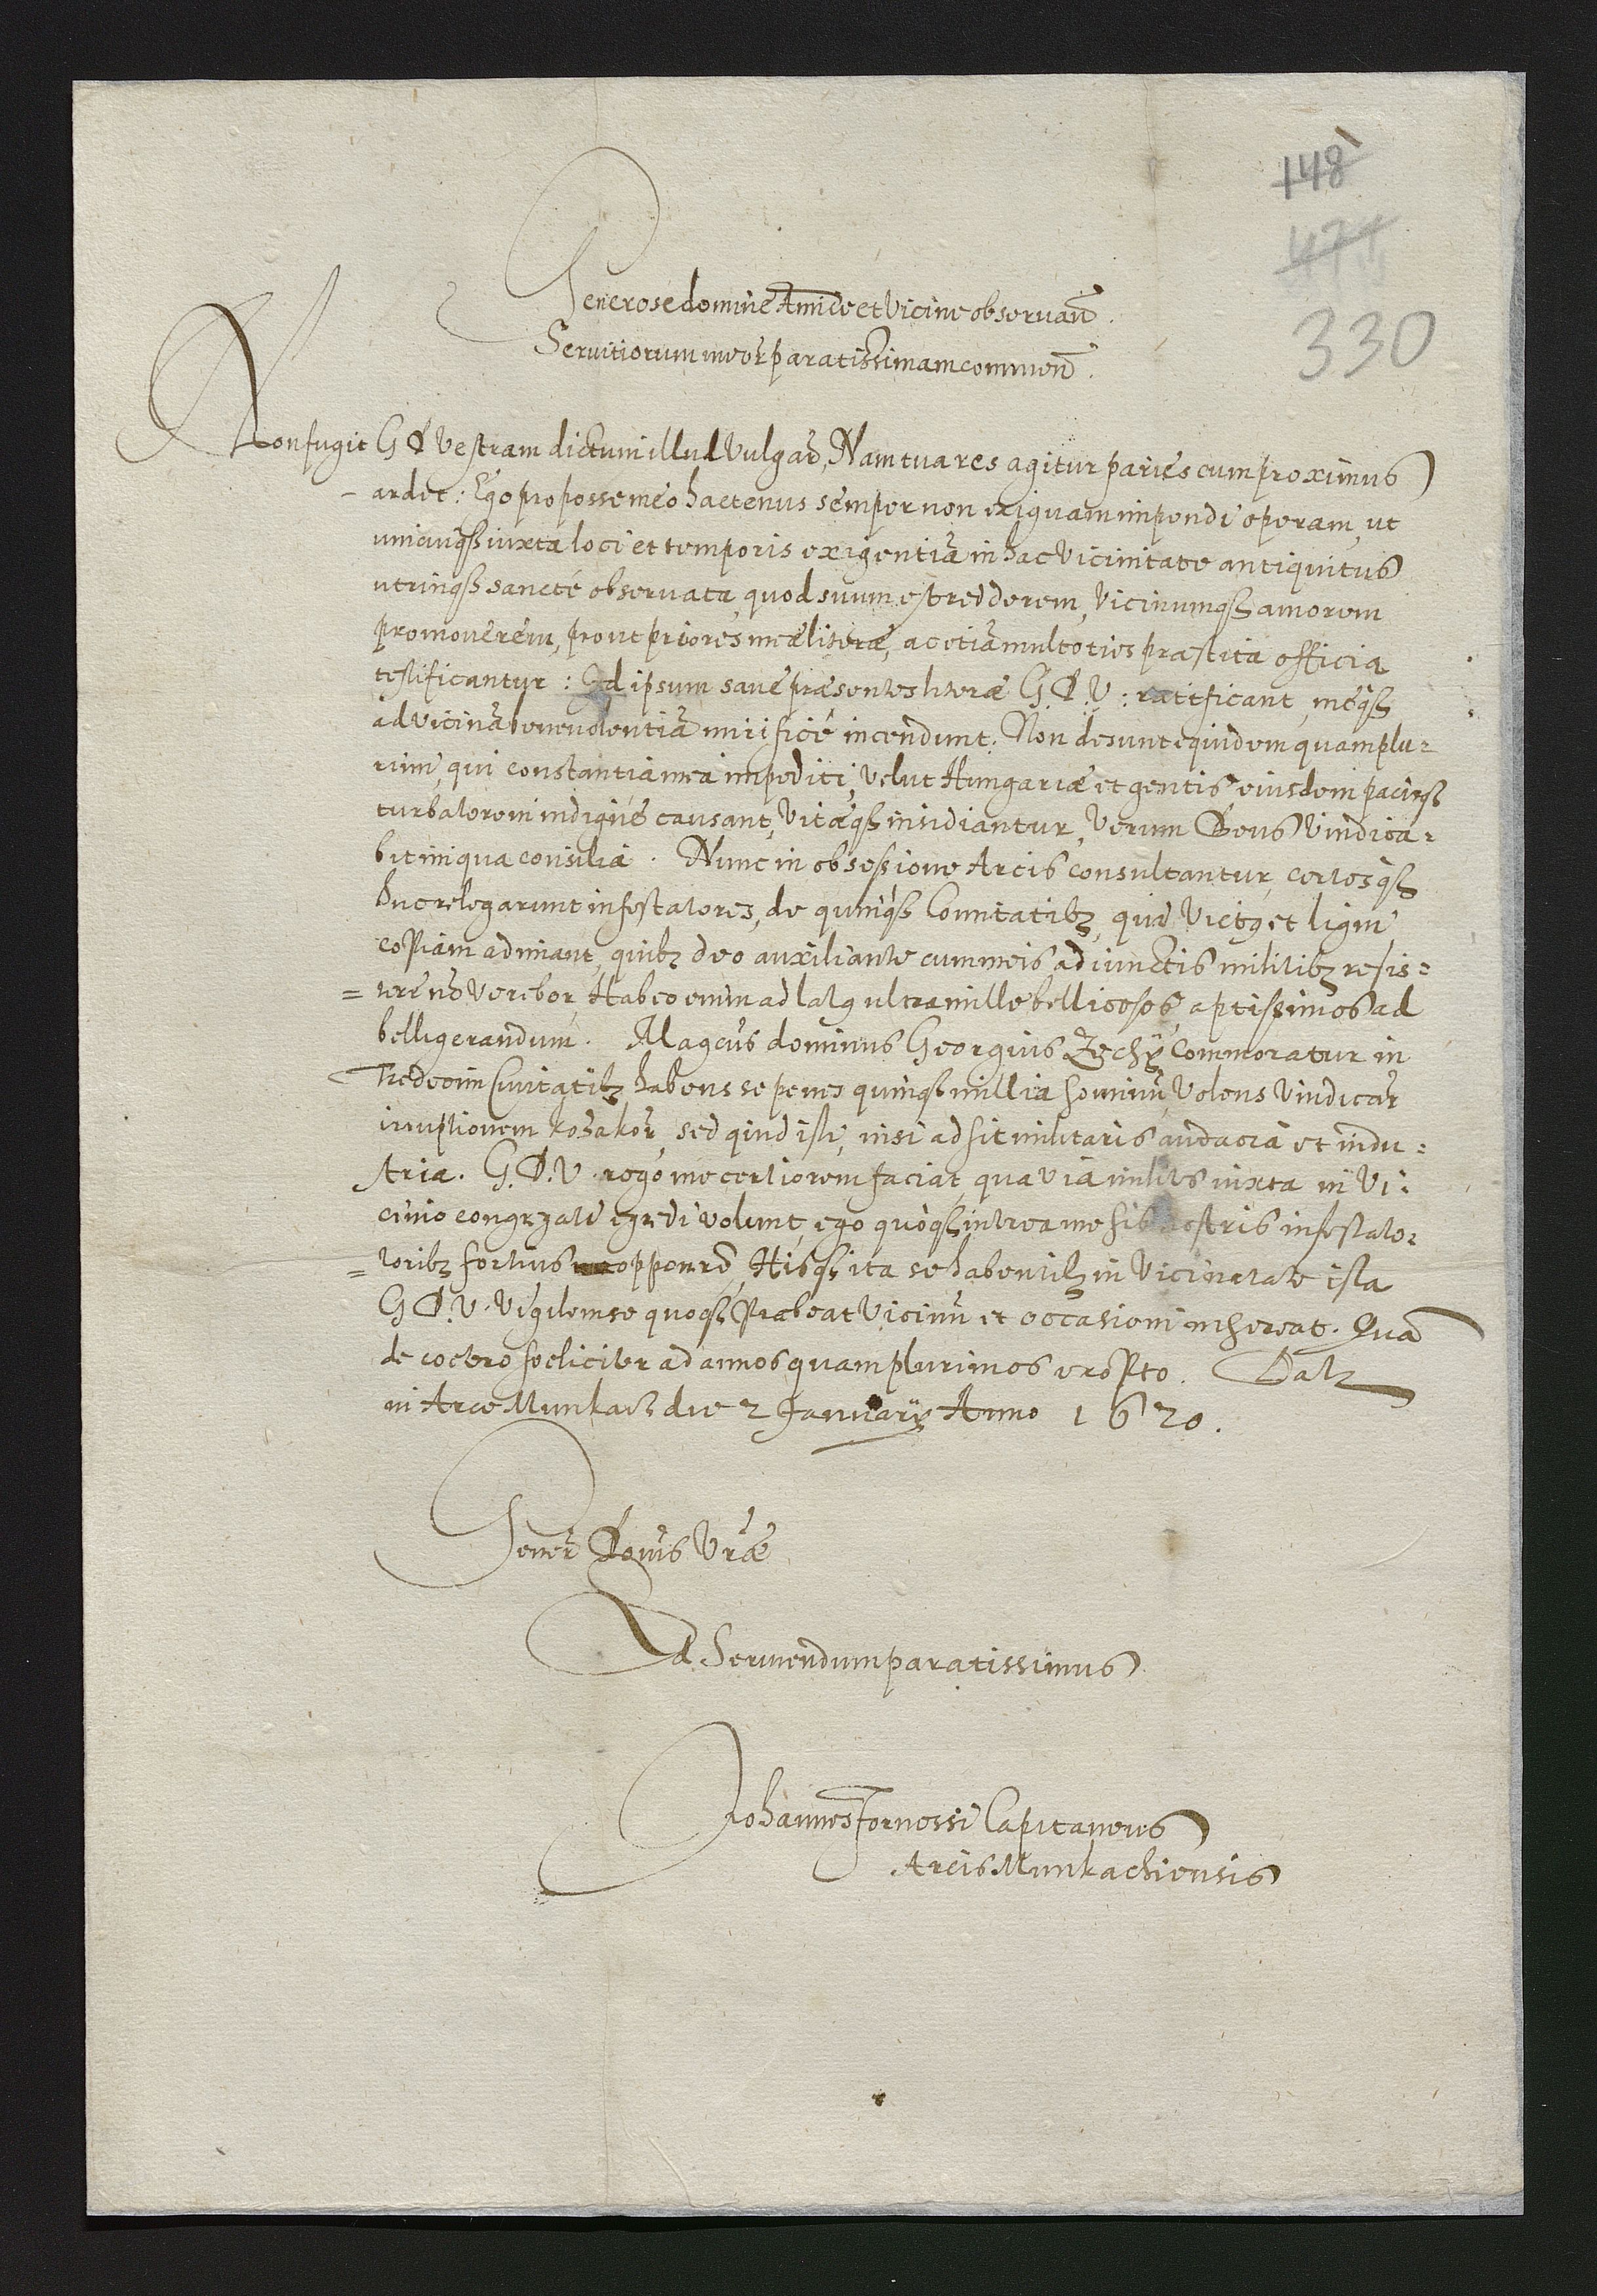 148
471
330
Generose domine Amice et Vicine observan̄.
Servitiorum meor̄ paratissimam commen̄.
Non fugit G D Vestram dictum illud Vulgar̄, Nam tua res agitur paries cum proximus
ardet: Ego pro posse meo hactenus semper non exiguam impendi operam, ut
unicuiqꝫ iuxta loci et temporis exigentiā in hac Vicinitate antiquitus
utrinqꝫ sancté observata, quod suum est redderem, Vicinumqꝫ amorem
promoverem, prout priores meæ literæ, ac etiā multoties præstita officia
testificantur: Id ipsum sane præsentes literæ G.D.V: ratificant, meqꝫ
ad vicinā benevolentiā mirificé incendunt. Non desunt equidem quamplu-
rimi, qui constantia mea impediti, velut Hungariæ et gentis eiusdem pacisqꝫ
turbatorem indigné causant, Vitæqꝫ insidiantur, Verum Deus Vindica-
bit iniqua consilia. Nunc in obsessione Arcis consultantur, certosqꝫ
huc relegarunt infestatores, de quinqꝫ Comitatibꝫ, qui victꝯ et ligni
copiam adimant, quibꝫ deo auxiliante cum meis adiunctis militibꝫ resis=
=tere nō Verebor, Habeo enim ad latꝯ ultra mille bellicosos, aptissimos ad
belligerandum. Magcūs dominus Georgius Zechÿ Commoratur in
Tredecim Civitatibꝫ habens se penes quinqꝫ millia hominū, Volens Vindicar̄
irruptionem kozakor̄, sed quid isti, nisi adsit militaris audacia et indu=
stria. G.D.V. rogo me certiorem faciat, qua via milites iuxta in Vi-
cinio congregati egredi volunt, ego quoqꝫ interea me his nostris infestato-
=toribꝫ fortius opponerē, Hisqꝫ ita se habentibꝫ in Vicinitate ista
G D.V. Vigilem se quoqꝫ præbeat Vicinū et occasioni inhereat. Quā
de coetero foeliciter ad annos quam plurimos exopto. Datꝫ
in Arce Munkacz die 2 Januarÿ Anno 1620.
Gener̄ Dōnis Vrāe
Ad Serviendum paratissimus
Johannes Fornossi Capitaneus
Arcis Munkachiensis